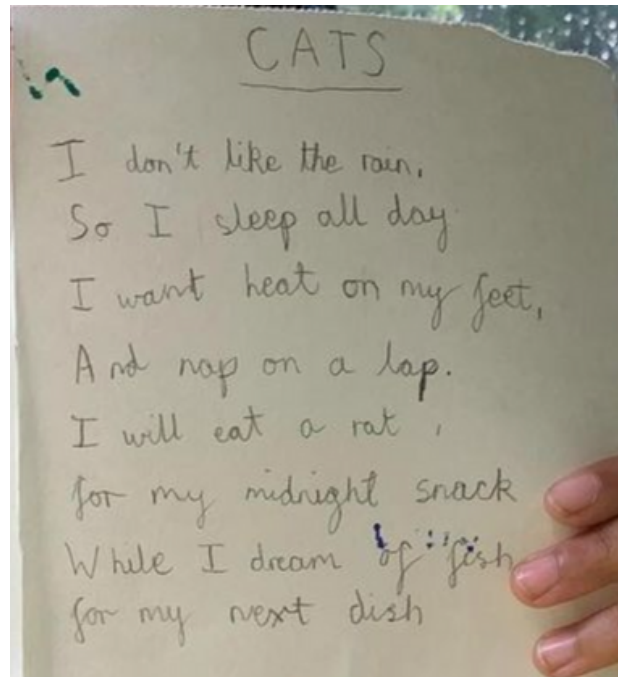 CATS
I don't like the rain,
So I sleep all day
I want heat on my feet,
And nap on a lap.
I will eat a rat,
for my midnight snack
While I dream of fish
for my next dish